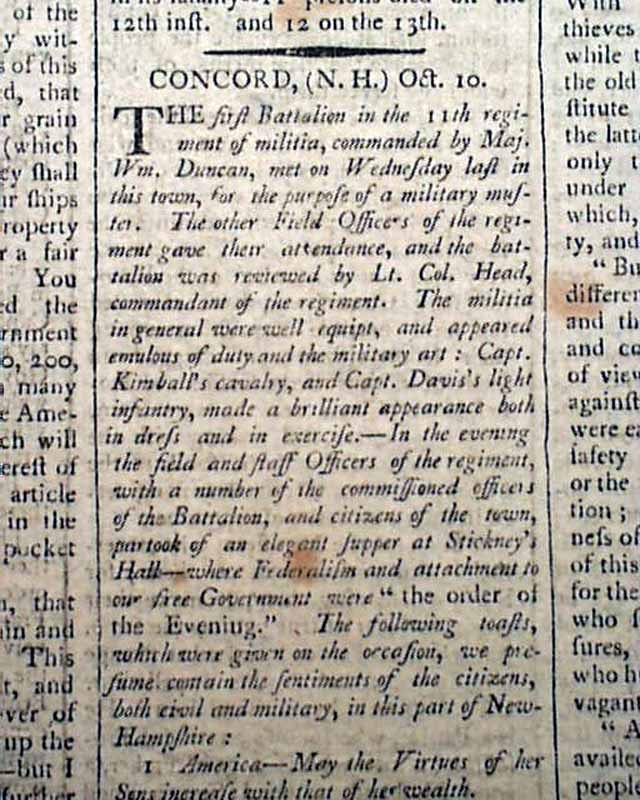 of the
y wit-
s of this
d, that
r grain
(which
ey ſhall
ur ſhips
roperty
r a fair
You
ed the
ernment
0, 200,
s many
e Ame-
ch will
ereſt of
article
in the
pocket
n, that
ain and
This
t, and
ver of
up the
—but I
further
12th inſt. and 12 on the 13th.
CONCORD, (N. H.) Oct. 10.
THE firſt Battalion in the 11th regi-
ment of militia, commanded by Maj.
Wm. Duncan, met on Wedneſday laſt in
this town, for the purpoſe of a military muſ-
ter. The other Field Officers of the regi-
ment gave their attendance, and the bat-
talion was reviewed by Lt. Col. Head,
commandant of the regiment. The militia
in general were well equipt, and appeared
emulous of duty and the military art: Capt.
Kimball's cavalry, and Capt. Davis's light
infantry, made a brilliant appearance both
in dreſs and in exerciſe.—In the evening
the field and ſtaff Officers of the regiment,
with a number of the commiſſioned officers
of the Battalion, and citizens of the town,
partook of an elegant ſupper at Stickney's
Hall—where Federaliſm and attachment to
our free Government were "the order of
the Evening." The following toaſts,
which were given on the occaſion, we pre-
ſume contain the ſentiments of the citizens,
both civil and military, in this part of New-
Hampſhire:
1 America—May the Virtues of her
Sons increaſe with that of her wealth.
With
thieves
while t
the old
ſtitute
the latt
only t
under
which,
ty, and
"Bu
differen
and th
and co
of view
againſt
were ea
ſafety
or the
tion;
neſs of
of this
for the
who ſ
ſures,
who h
vagant
"A
availed
people